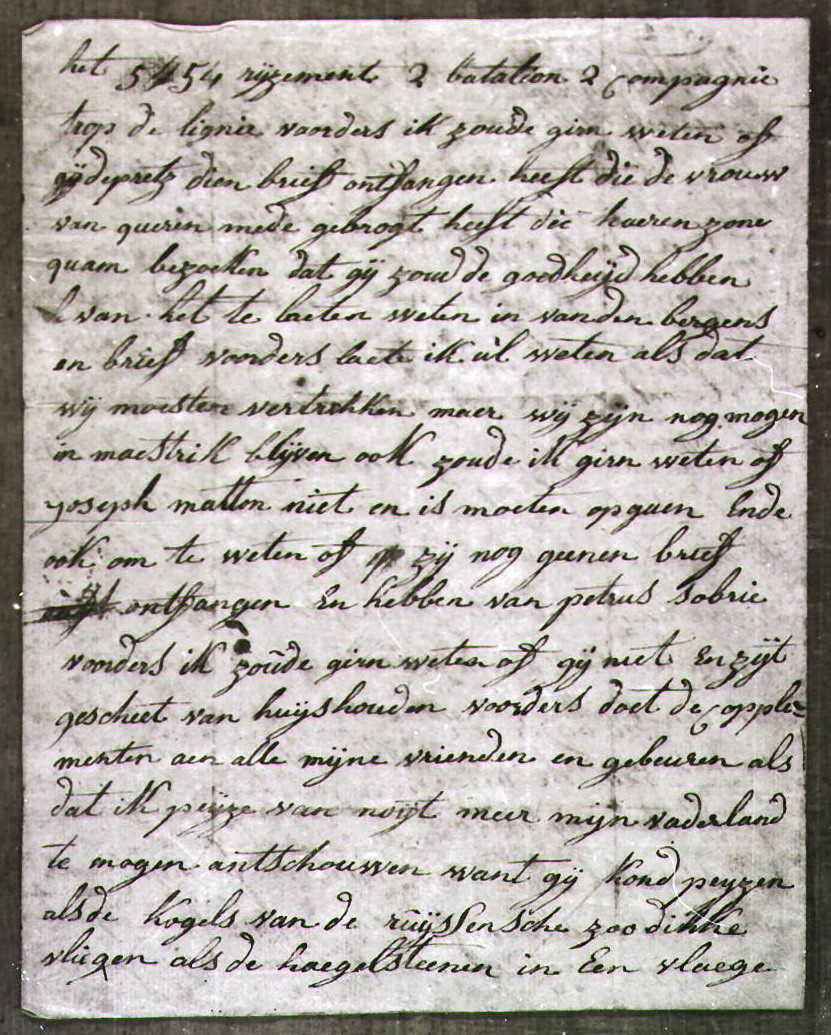 het 54 54 rijzement 2 bataleon 2 Compagnie
trop de lignie voorders ik zoude girn weten of
gij depretz dien brief ontfangen heeft die de vrouw
van querin mede gebrogt heeft die haeren zone
quam bezoeken dat gij zoud de goedheijd hebben
van het te laeten weten in vanden bergens
en brief voorders laete ik ul weten als dat
wij moesten vertrekken maer wij zijn nog mogen
in maestrik blijven ook zoude ik girn weten of
yoseph matton niet en is moeten opgaen Ende
ook om te weten of zij nog geenen brief
ontfangen En hebben van petrus sobrie
voorders ik zoude girn weten of gij niet En zijt
gescheet van huijshouden voorders doet de Copple=
menten aen alle mijne vrienden en gebeuren als
dat ik peijze van noijt meer mijn vaderland
te mogen antschouwen want gij kond peyzen
als de kogels van de ruijssensche zoo dikke
vliegen als de haegelsteenen in Een vlaege